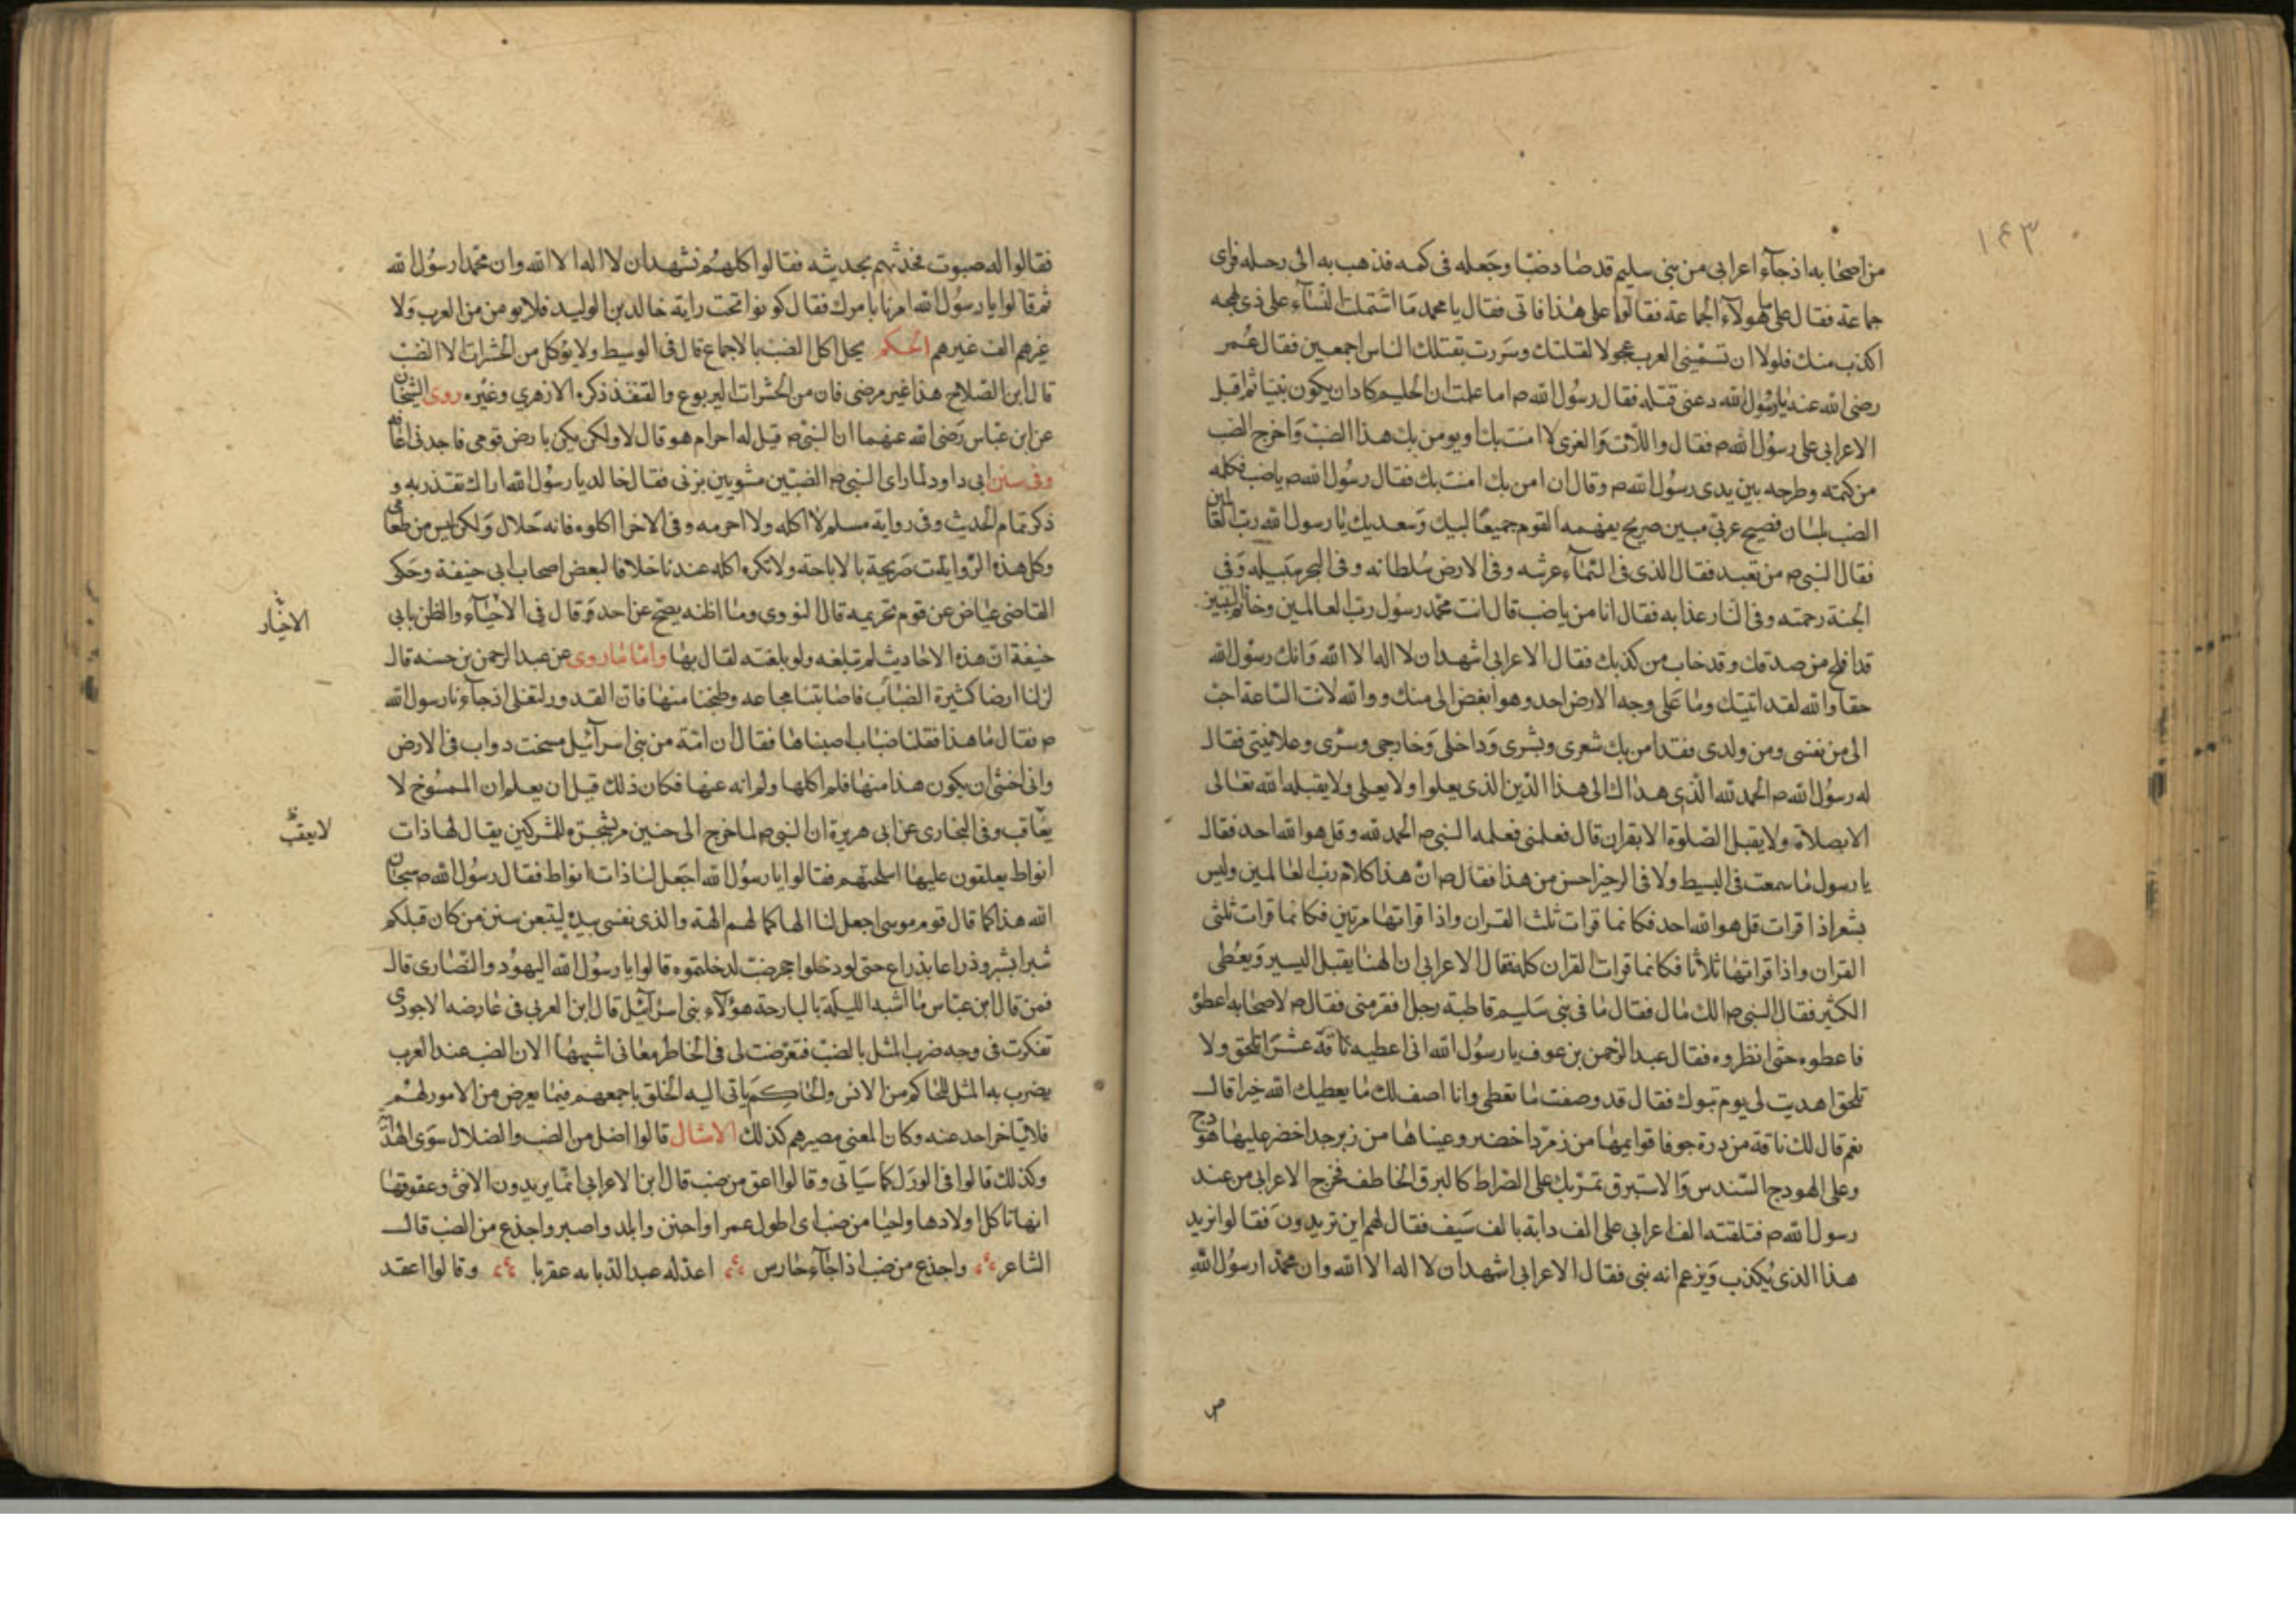 ١٤٣
من اصحابه اذ جآء اعرابى من بنى سليم قد صاد ضبا وجعله فى كمه فذهب به الى رحله فراى
جماعة فقال على ما هولآء الجماعة فقالوا على هذا فاتى فقال يا محمد ما اشتملت النسآء على ذى لهجه
اكذب منك فلولا ان تسمينى العرب عجولا لقتلتك وسررت بقتلك الناس اجمعين فقال عمر
رضى الله عنه يا رسول الله دعنى قتله فقال رسول الله ص اما علمت ان الحليم كاد ان يكون نبيا ثم اقبل
الاعرابى على رسول الله ص فقال واللات والعزى لا امنت بك او يومن بك هذا الضب واخرج الضب
من كمته وطرحه بين يدى رسول الله ص وقال ان امن بك امنت بك فقال رسول الله ص يا ضب فكلمه
الضب بلسان فصيح عربى مبين صريح يفهمه القوم جميعا لبيك وسعديك يا رسول الله رب العالمين
فقال النبى ص من تعبد فقال الذى فى السمآء عرشه وفى الارض سلطانه وفى البحر سبيله وفى
الجنة رحمته وفى النار عذابه فقال انا من يا ضب قال انت محمد رسول رب العالمين وخاتم النبيين
قد افلح من صدقك وقد خاب من كذبك فقال الاعرابى اشهد ان لا اله الا الله وانك رسول الله
حقا والله لقد اتيتك وما على وجه الارض احد وهو ابغض الى منك ووالله لانت الساعة احب
الى من نفسى ومن ولدى فقد امن بك شعرى وبشرى وداخلى وخارجى وسرى وعلانيتى فقال
له رسول الله ص الحمد لله الذى هداك الى هذا الدين الذى يعلوا ولا يعلى ولا يقبله الله تعالى
الا بصلاة ولا يقبل الصلوة الا بقران قال فعلمنى فعلمه النبى ص الحمد لله وقل هو الله احد فقال
يا رسول ما سمعت فى البسيط ولا فى الرجز احسن من هذا فقال ص ان هذا كلام رب العالمين وليس
بشعر اذا قرات قل هو الله احد فكانما قرات ثلث القران واذا قراتها مرتين فكانما قرات ثلثى
القران واذا قراتها ثلاثا فكانما قرات القران كله فقال الاعرابى ان الهنا يقبل اليسير ويعطى
الكثير فقال النبى ص الك مال فقال ما فى بنى سليم قاطبة رجل افقر منى فقال ص لاصحابه اعطوه
فاعطوه حتى انظروه فقال عبد الرحمن بن عوف يا رسول الله انى اعطيه ناقة عشرا تلحق ولا
تلحق اهديت لى يوم تبوك فقال قد وصفت ما تعطى وانا اصف لك ما يعطيك الله خيرا قال
نعم قال لك ناقة من درة جوفا قوايمها من زمرد اخضر وعيناها من زبرجد اخضر عليها هودج
وعلى الهودج السندس والاستبرق تمر بك على الصراط كالبرق الخاطف فخرج الاعرابى من عند
رسول الله ص فتلقته الف اعرابى على الف دابة بالف سيف فقال لهم اين تريدون فقالوا نريد
هذا الذى يكذب ويزعم انه نبى فقال الاعرابى اشهد ان لا اله الا الله وان محمدا رسول الله
فقالوا له صبوت فحدثهم بحديثه فقالوا كلهم نشهد ان لا اله الا الله وان محمدا رسول الله
ثم قالوا يا رسول الله امرنا بامرك فقال كونوا تحت راية خالد بن الوليد فلم يومن من العرب ولا
غيرهم الف غيرهم الحكم يحل اكل الضب بالاجماع قال فى الوسيط ولا يوكل من الحشرات الا الضب
قال ابن الصلاح هذا غير مرضى فان من الحشرات اليربوع والقنفذ ذكره الازهري وغيره روى الشيخان
عن ابن عباس رضى الله عنهما ان النبى ص قيل له احرام هو قال لا ولكن لم يكن بارض قومى فاجدنى اعافه
وفى سنن ابى داود لما راى النبى ص الضبين مشويين بزق فقال خالد يا رسول الله اراك تقذر به و
ذكر تمام الحديث وفى رواية مسلم لا اكله ولا احرمه وفى الاخرا اكلوه فانه حلال ولكن ليس من طعامى
وكل هذه الروايات صريحة بالاباحة ولا تكره اكله عندنا خلافا لبعض اصحاب ابى حنيفة وحكى
القاضى عياض عن قوم تحريمه قال النووى وما اظنه يصح عن احد وقال فى الاحيآء والظن بابى
الاخبار
حنيفة ان هذه الاحاديث لم تبلغه ولو بلغته لقال بها واما ما روى عن عبد الرحمن بن حسنه قال
نزلنا ارضا كثيرة الضباب فاصابتنا مجاعه وطبخنا منها فان القدور لتغلى اذ جآءنا رسول الله
ص فقال ما هذا فقلنا ضباب اصبناها فقال ان امة من بنى اسرآئيل مسخت دواب فى الارض
وانى اخشى ان يكون هذا منها فلم اكلها ولم انه عنها فكان ذلك قبل ان يعلم ان الممسوخ لا
يعاقب وفى البخارى عن ابى هريرة ان النبى ص لما خرج الى حنين مر بشجرة للمشركين يقال لها ذات
لا يعقب
انواط يعلقون عليها اسلحتهم فقالوا يا رسول الله اجعل لنا ذات انواط فقال رسول الله ص سبحان
الله هذا كما قال قوم موسى اجعل لنا الها كما لهم الهة والذى نفسى بيده ليتبعن سنن من كان قبلكم
شبرا بشبر وذراعا بذراع حتى لو دخلوا جحر ضب لدخلتموه قالوا يا رسول الله اليهود والنصارى قال
فمن قال ابن عباس ما اشبه الليلة بالبارحة هؤلآء بنى اسرآئيل قال ابن العربى فى عارضه الاحوذى
تفكرت فى وجه ضرب المثل بالضب فتعرضت لى فى الخاطر معانى اشبهها الان الضب عند العرب
يضرب به المثل للحاكم من الانس والحاكم ياتى اليه الخلق باجمعهم فيما يعرض من الامور لهم
فلا يتاخر احد عنه وكان المعنى مصيرهم كذلك الامثال قالوا اضل من الضب والضلال سوى الهداية
وكذلك قالوا فى الورل كما سياتى وقالوا اعق من ضب قال ابن الاعرابى انما يريدون الانثى وعقوقها
انها تاكل اولادها واحيا من ضب اى اطول عمرا واجبن وابلد واصبر واجذع من الضب قال
الشاعر واجذع من ضب اذا جآء حارس اعذله عبد الذبابه عقربا وقالوا اعقد
ص